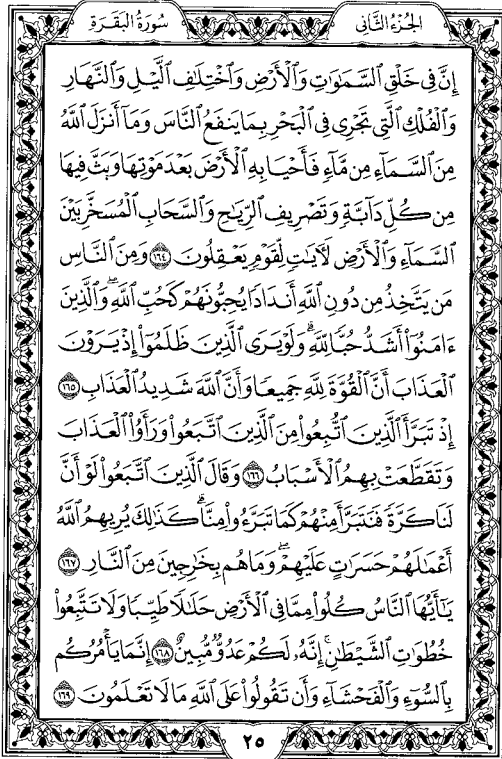 الجُزءُ الثَّانِي
سُورَةُ البَقَرَةِ
إِنَّ فِي خَلْقِ السَّمَٰوَٰتِ وَالْأَرْضِ وَاخْتِلَٰفِ الَّيْلِ وَالنَّهَارِ
وَالْفُلْكِ الَّتِي تَجْرِي فِي الْبَحْرِ بِمَا يَنفَعُ النَّاسَ وَمَا أَنزَلَ اللَّهُ
مِنَ السَّمَاءِ مِن مَّاءٍ فَأَحْيَا بِهِ الْأَرْضَ بَعْدَ مَوْتِهَا وَبَثَّ فِيهَا
مِن كُلِّ دَابَّةٍ وَتَصْرِيفِ الرِّيَٰحِ وَالسَّحَابِ الْمُسَخَّرِ بَيْنَ
السَّمَاءِ وَالْأَرْضِ لَءَايَٰتٍ لِّقَوْمٍ يَعْقِلُونَ ١٦٤ وَمِنَ النَّاسِ
مَن يَتَّخِذُ مِن دُونِ اللَّهِ أَندَادًا يُحِبُّونَهُمْ كَحُبِّ اللَّهِ ۖ وَالَّذِينَ
ءَامَنُوا أَشَدُّ حُبًّا لِّلَّهِ ۗ وَلَوْ يَرَى الَّذِينَ ظَلَمُوا إِذْ يَرَوْنَ
الْعَذَابَ أَنَّ الْقُوَّةَ لِلَّهِ جَمِيعًا وَأَنَّ اللَّهَ شَدِيدُ الْعَذَابِ ١٦٥
إِذْ تَبَرَّأَ الَّذِينَ اتُّبِعُوا مِنَ الَّذِينَ اتَّبَعُوا وَرَأَوُا الْعَذَابَ
وَتَقَطَّعَتْ بِهِمُ الْأَسْبَابُ ١٦٦ وَقَالَ الَّذِينَ اتَّبَعُوا لَوْ أَنَّ
لَنَا كَرَّةً فَنَتَبَرَّأَ مِنْهُمْ كَمَا تَبَرَّءُوا مِنَّا ۗ كَذَٰلِكَ يُرِيهِمُ اللَّهُ
أَعْمَٰلَهُمْ حَسَرَٰتٍ عَلَيْهِمْ ۖ وَمَا هُم بِخَٰرِجِينَ مِنَ النَّارِ ١٦٧
يَٰأَيُّهَا النَّاسُ كُلُوا مِمَّا فِي الْأَرْضِ حَلَٰلًا طَيِّبًا وَلَا تَتَّبِعُوا
خُطُوَٰتِ الشَّيْطَٰنِ ۚ إِنَّهُ لَكُمْ عَدُوٌّ مُّبِينٌ ١٦٨ إِنَّمَا يَأْمُرُكُم
بِالسُّوءِ وَالْفَحْشَاءِ وَأَن تَقُولُوا عَلَى اللَّهِ مَا لَا تَعْلَمُونَ ١٦٩
٢٥